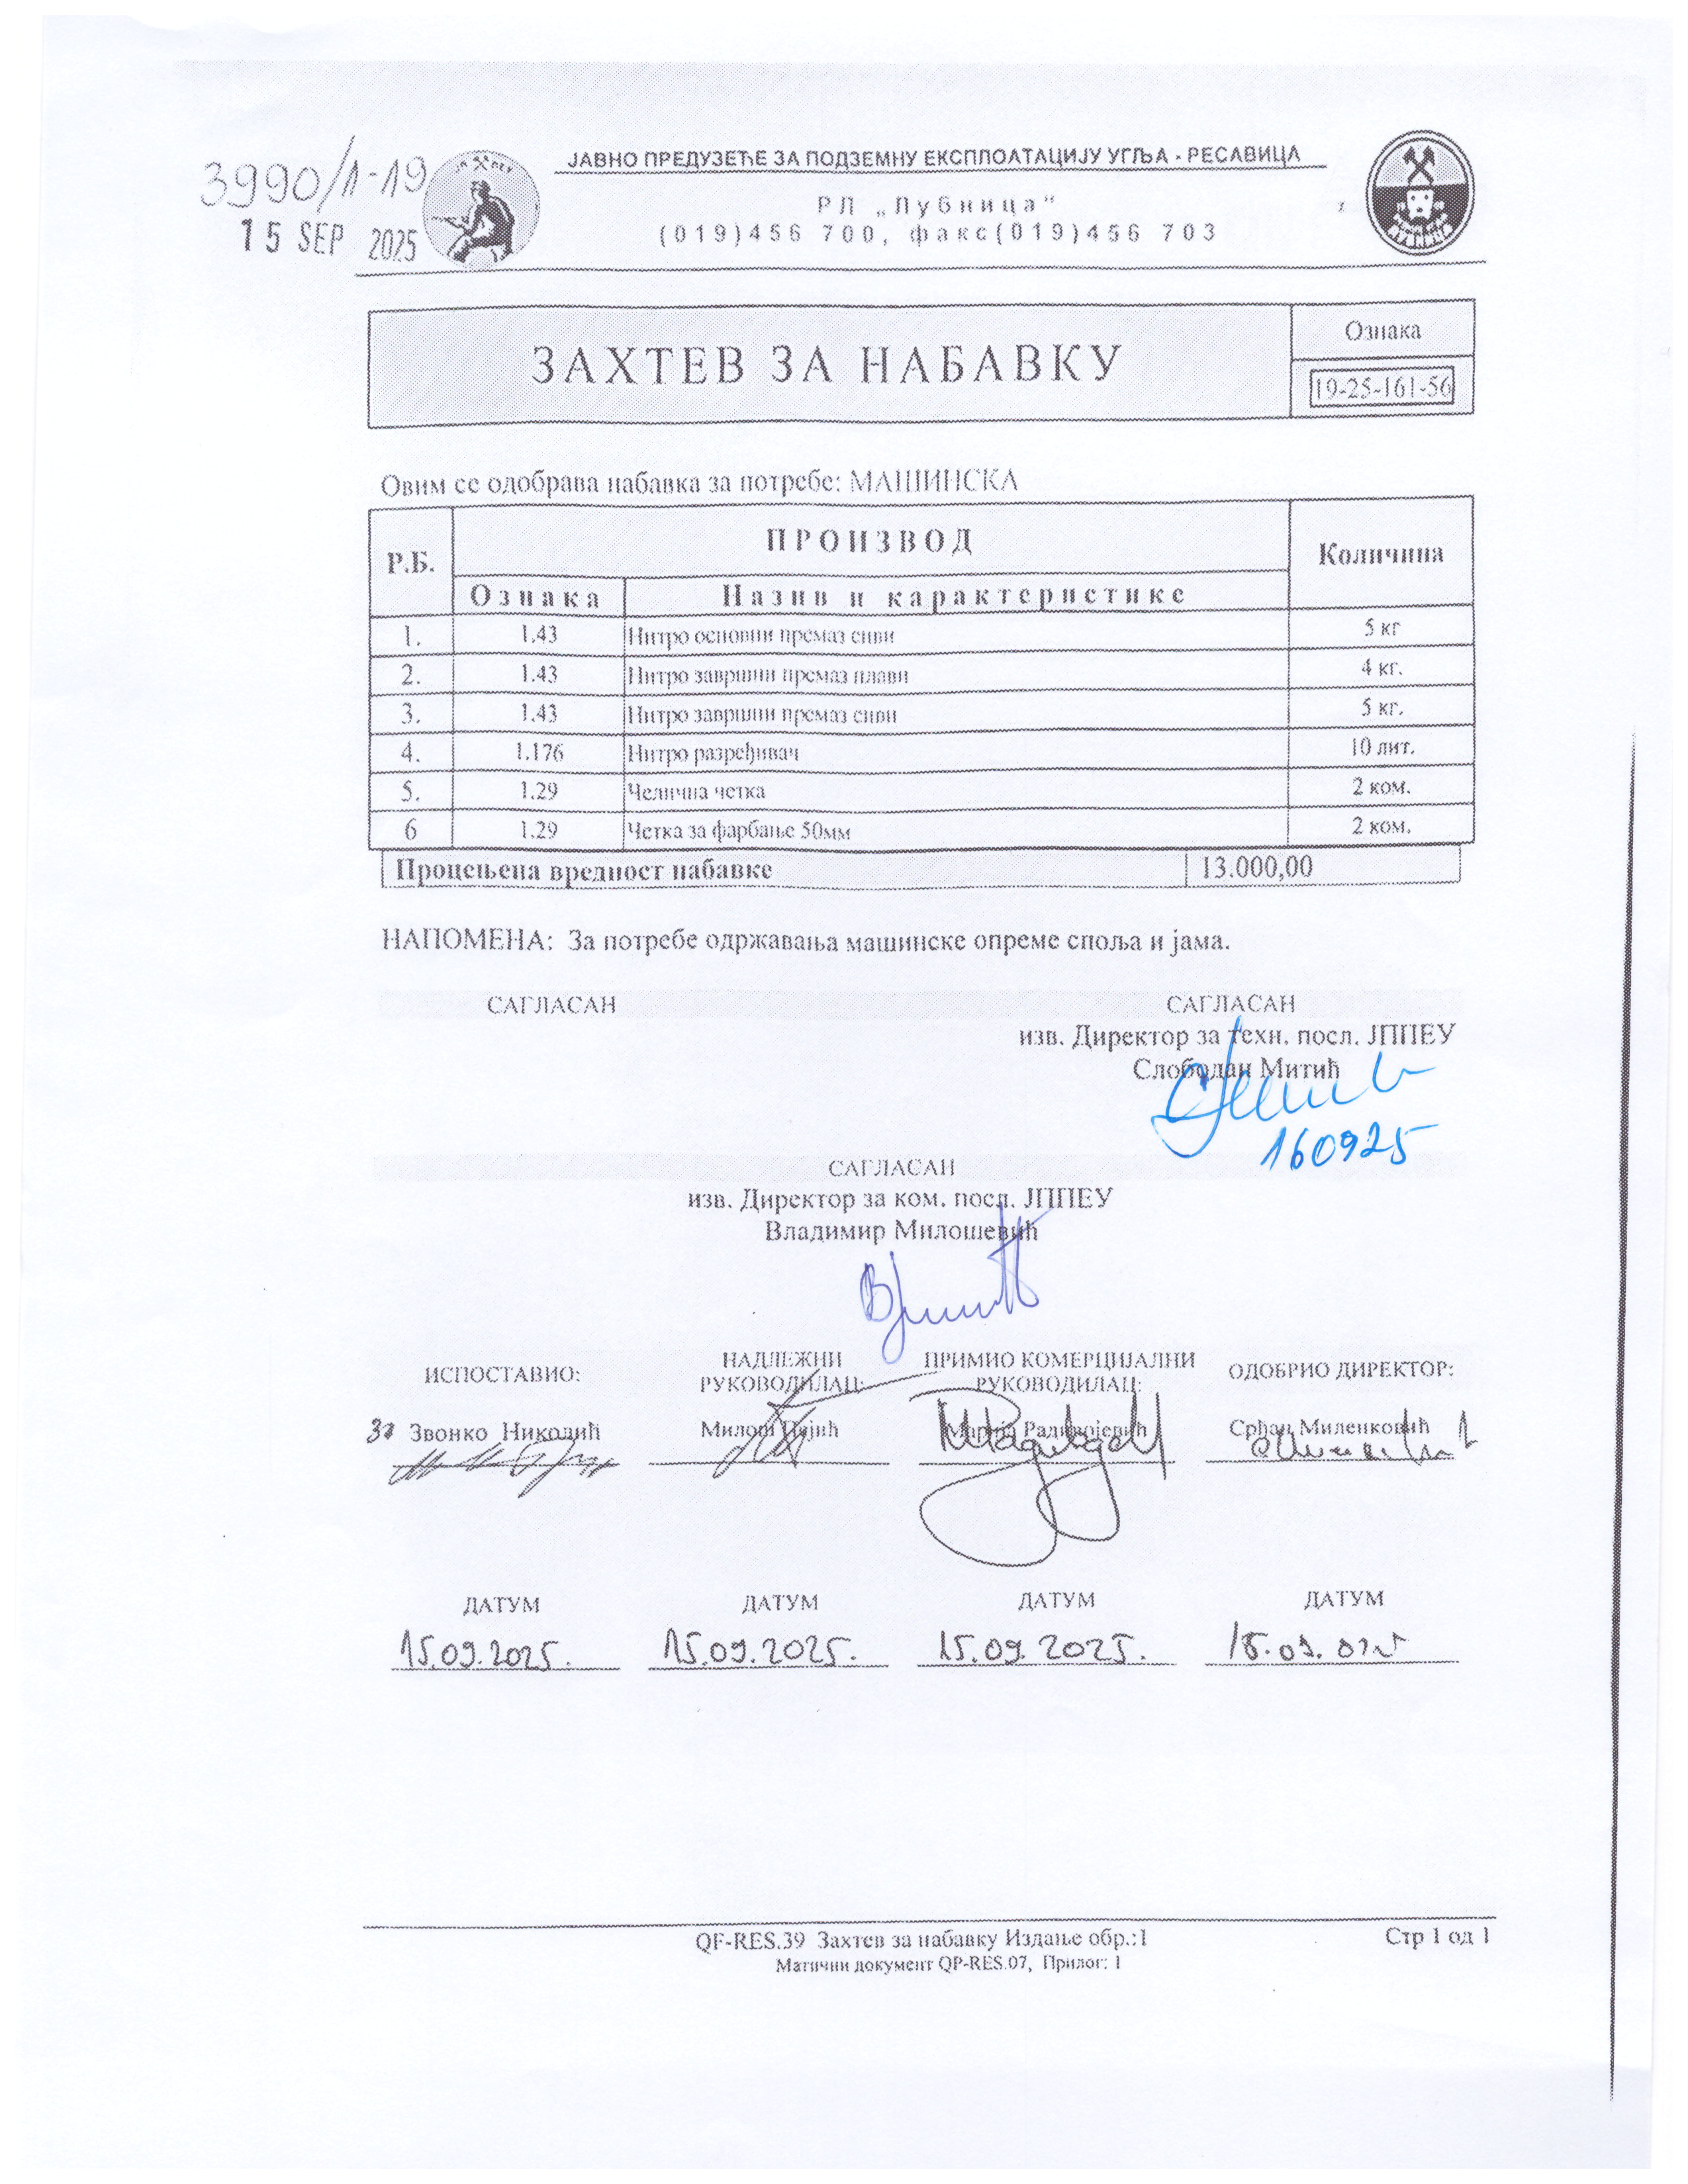 3990/1-19
15 SEP 2025
ЈАВНО ПРЕДУЗЕЋЕ ЗА ПОДЗЕМНУ ЕКСПЛОАТАЦИЈУ УГЉА - РЕСАВИЦА
РЛ „Лубница“
(019)456 700, факс(019)456 703
ЗАХТЕВ ЗА НАБАВКУ
Ознака
19-25-161-56
Овим се одобрава набавка за потребе: МАШИНСКА
Р.Б. ПРОИЗВОД Количина
Ознака Назив и карактеристике
1. 1.43 Нитро основни премаз сиви 5 кг
2. 1.43 Нитро завршни премаз плави 4 кг.
3. 1.43 Нитро завршни премаз сиви 5 кг.
4. 1.176 Нитро разређивач 10 лит.
5. 1.29 Челична четка 2 ком.
6 1.29 Четка за фарбање 50мм 2 ком.
Процењена вредност набавке 13.000,00
НАПОМЕНА: За потребе одржавања машинске опреме споља и јама.
САГЛАСАН САГЛАСАН
изв. Директор за техн. посл. ЈППЕУ
Слободан Митић
160925
САГЛАСАН
изв. Директор за ком. посл. ЈППЕУ
Владимир Милошевић
ИСПОСТАВИО: НАДЛЕЖНИ РУКОВОДИЛАЦ: ПРИМИО КОМЕРЦИЈАЛНИ РУКОВОДИЛАЦ: ОДОБРИО ДИРЕКТОР:
Звонко Николић Милош Марија Радивојевић Срђан Миленковић
ДАТУМ ДАТУМ ДАТУМ ДАТУМ
15.09.2025. 15.09.2025. 15.09.2025.
QF-RES.39 Захтев за набавку Издање обр.:1 Стр 1 од 1
Матични документ QP-RES.07, Прилог: 1